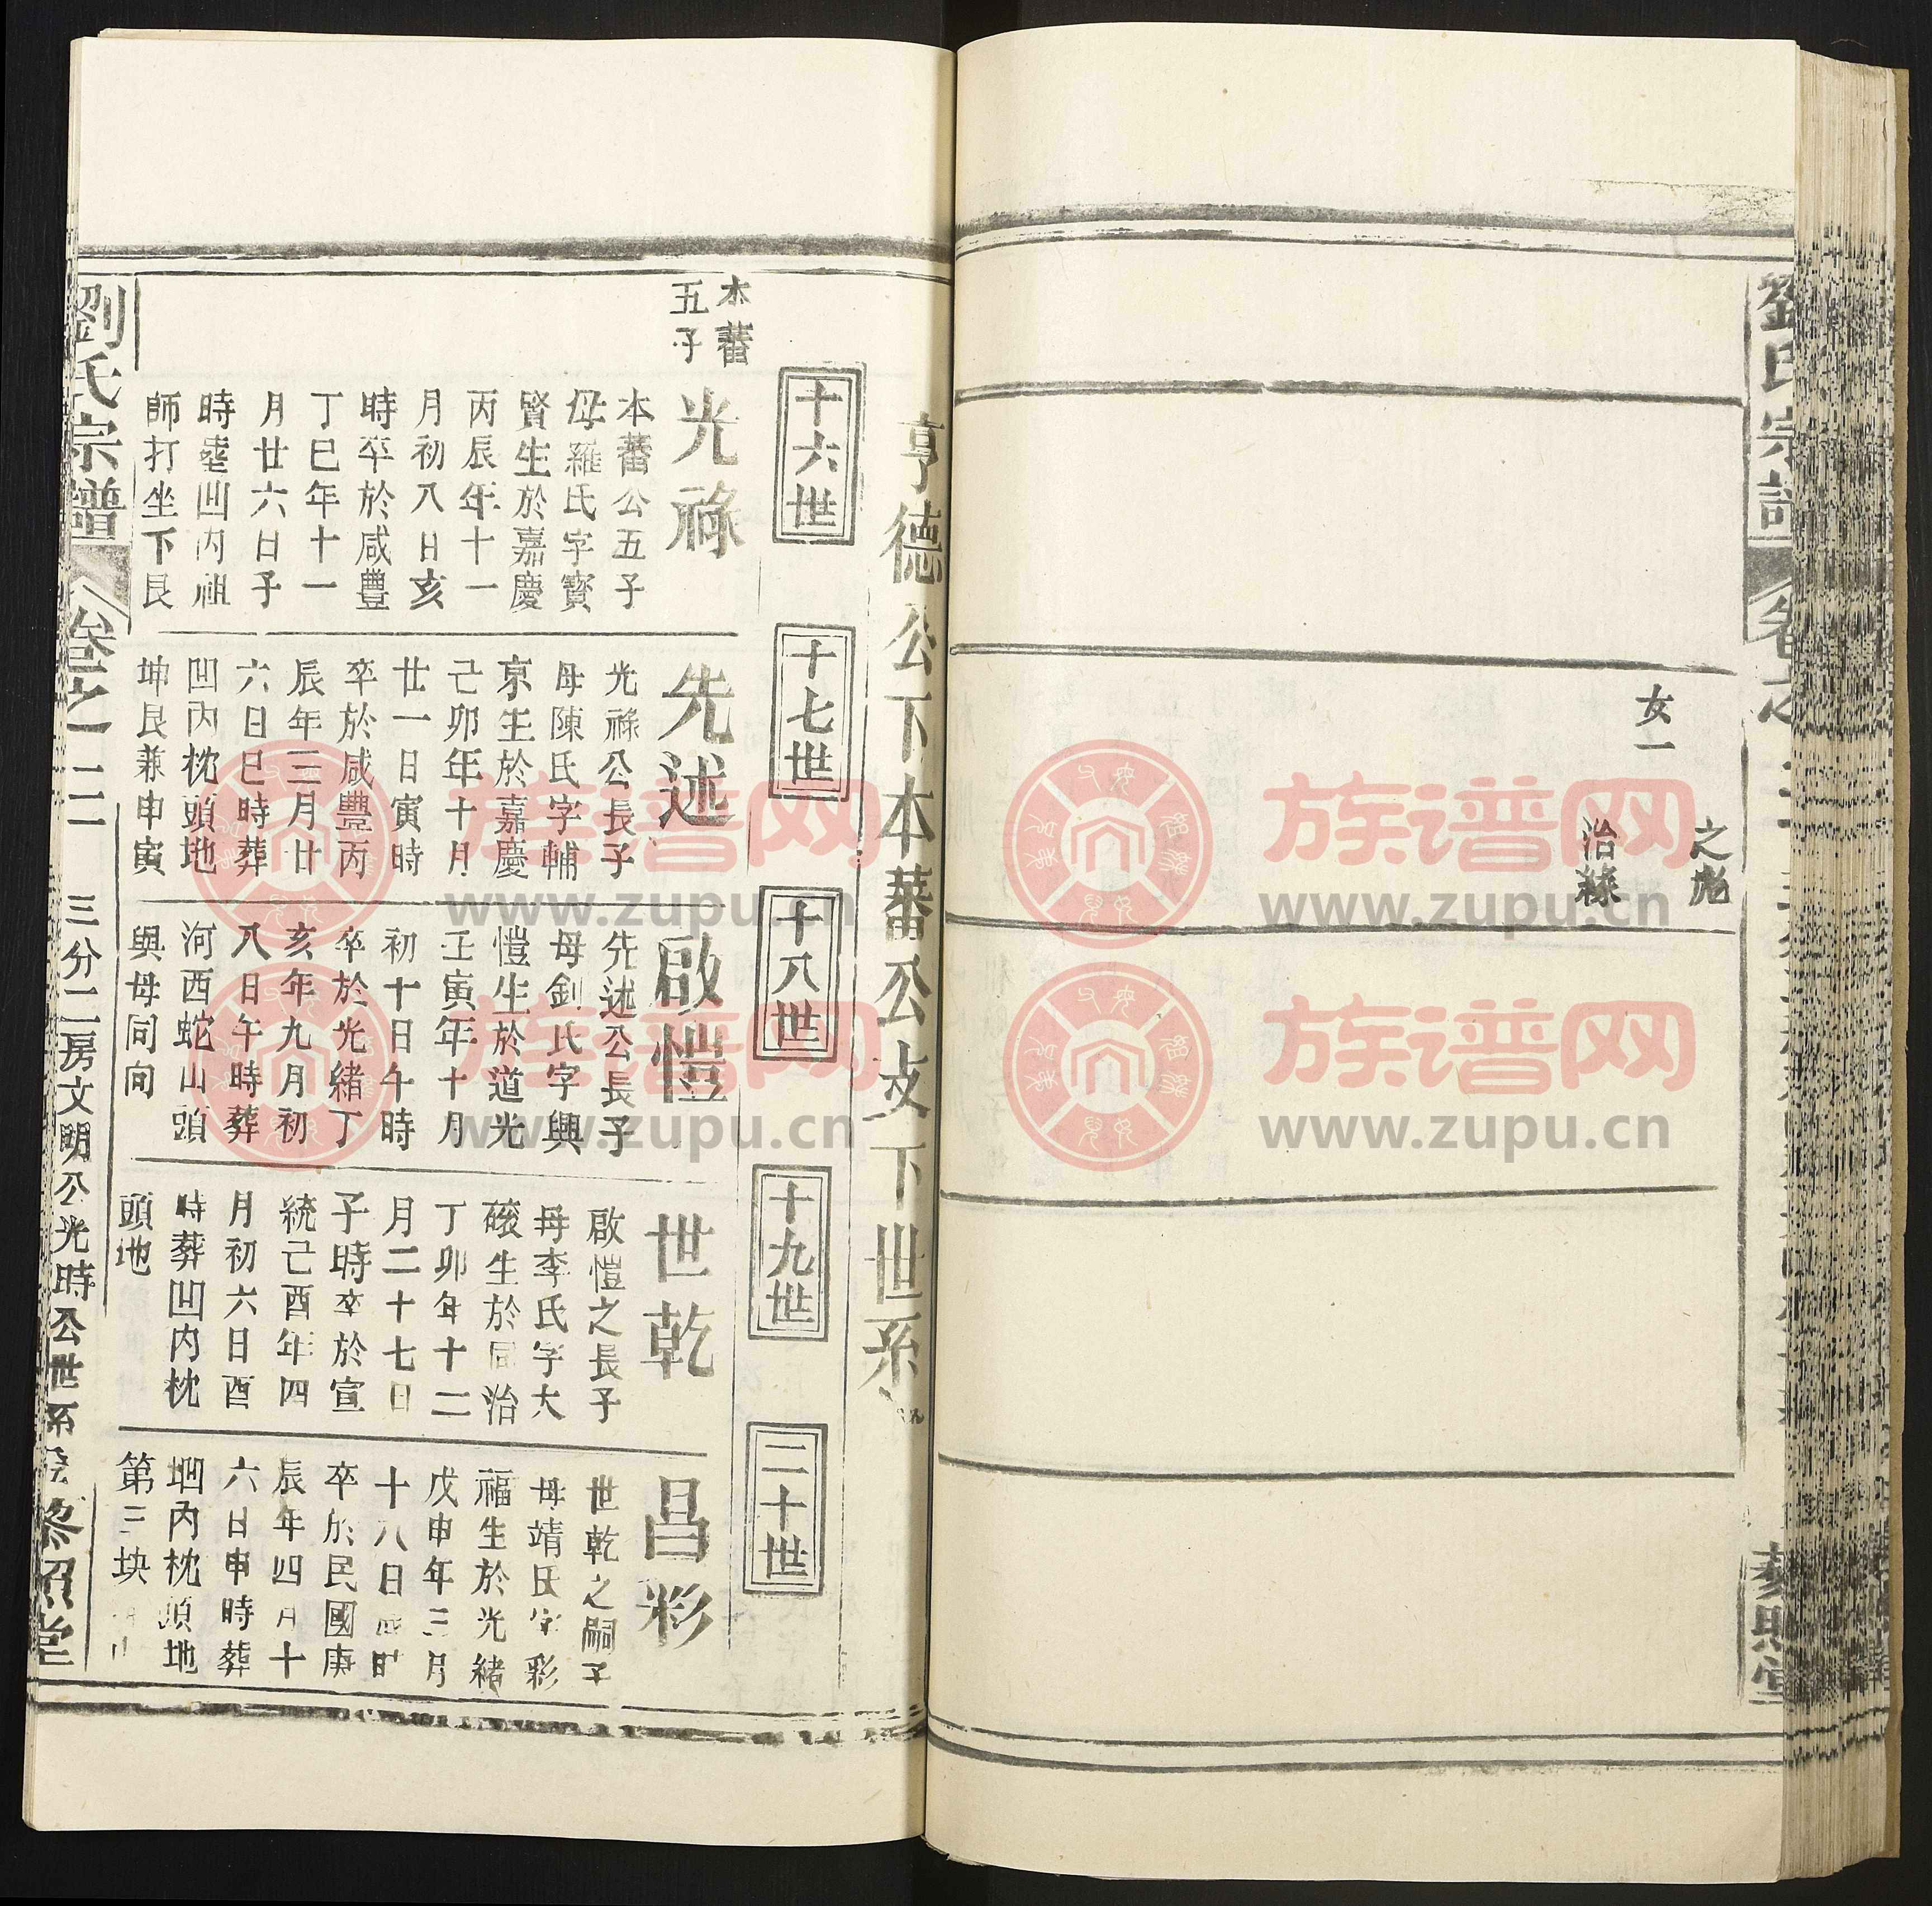 劉氏宗譜
女一
之彪
治綠
藜照堂
亨德公下本蕃公支下世系
十六世
十七世
十八世
十九世
二十世
本蕃
五子
光祿
本蕃公五子
母羅氏字寳
賢生於嘉慶
丙辰年十一
月初八日亥
時卒於咸豐
丁巳年十一
月廿六日子
時塟凹内祖
師打坐下艮
先述
光祿公長子
母陳氏字輔
京生於嘉慶
己卯年十月
廿一日寅時
卒於咸豐丙
辰年三月廿
六日巳時葬
凹内枕頭地
坤艮兼申寅
啟愷
先述公長子
母劉氏字興
愷生於道光
壬寅年十月
初十日午時
卒於光緒丁
亥年九月初
八日午時葬
河西蛇山頭
與母同向
世乾
啟愷之長子
母李氏字大
磙生於同治
丁卯年十二
月二十七日
子時卒於宣
統己酉年四
月初六日酉
時葬凹内枕
頭地
昌彩
世乾之嗣子
母靖氏字彩
福生於光緒
戊申年三月
十八日時
卒於民國庚
辰年四月十
六日申時葬
垇内枕頭地
第三块
劉氏宗譜
卷之二二
三分二房文明公光時公世系
藜照堂
族谱网
www.zupu.cn
族谱网
www.zupu.cn
族谱网
www.zupu.cn
族谱网
www.zupu.cn